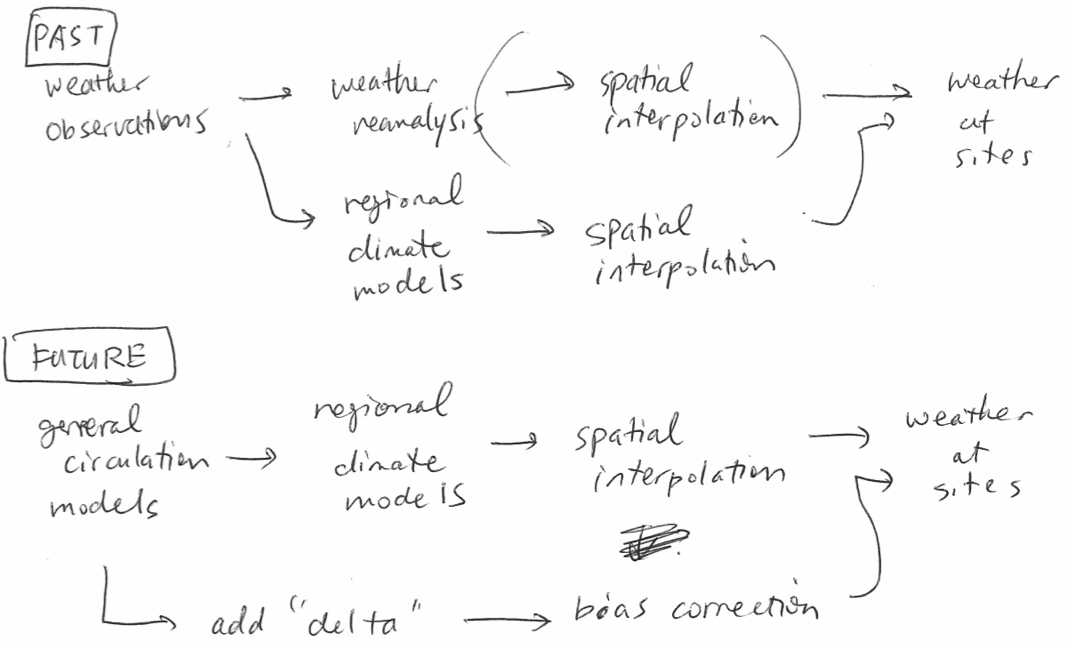 PAST
weather
observations
weather
reanalysis
spatial
interpolation
weather
at
sites
regional
climate
models
spatial
interpolation
FUTURE
general
circulation
models
regional
climate
models
spatial
interpolation
weather
at
sites
add "delta"
bias correction